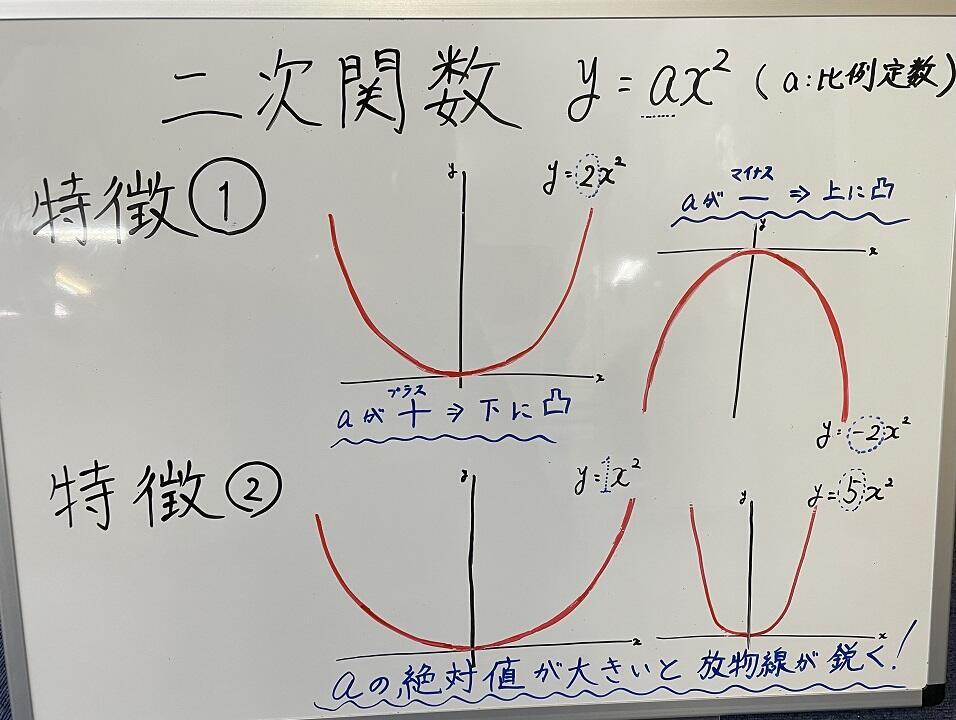 二次関数 y=ax² (a:比例定数)
特徴①
y
y=2x²
x
aが プラス + ⇒ 下に凸
aが マイナス ー ⇒ 上に凸
y
x
y=-2x²
特徴②
y
y=1x²
x
y
y=5x²
x
aの絶対値が大きいと放物線が鋭く!